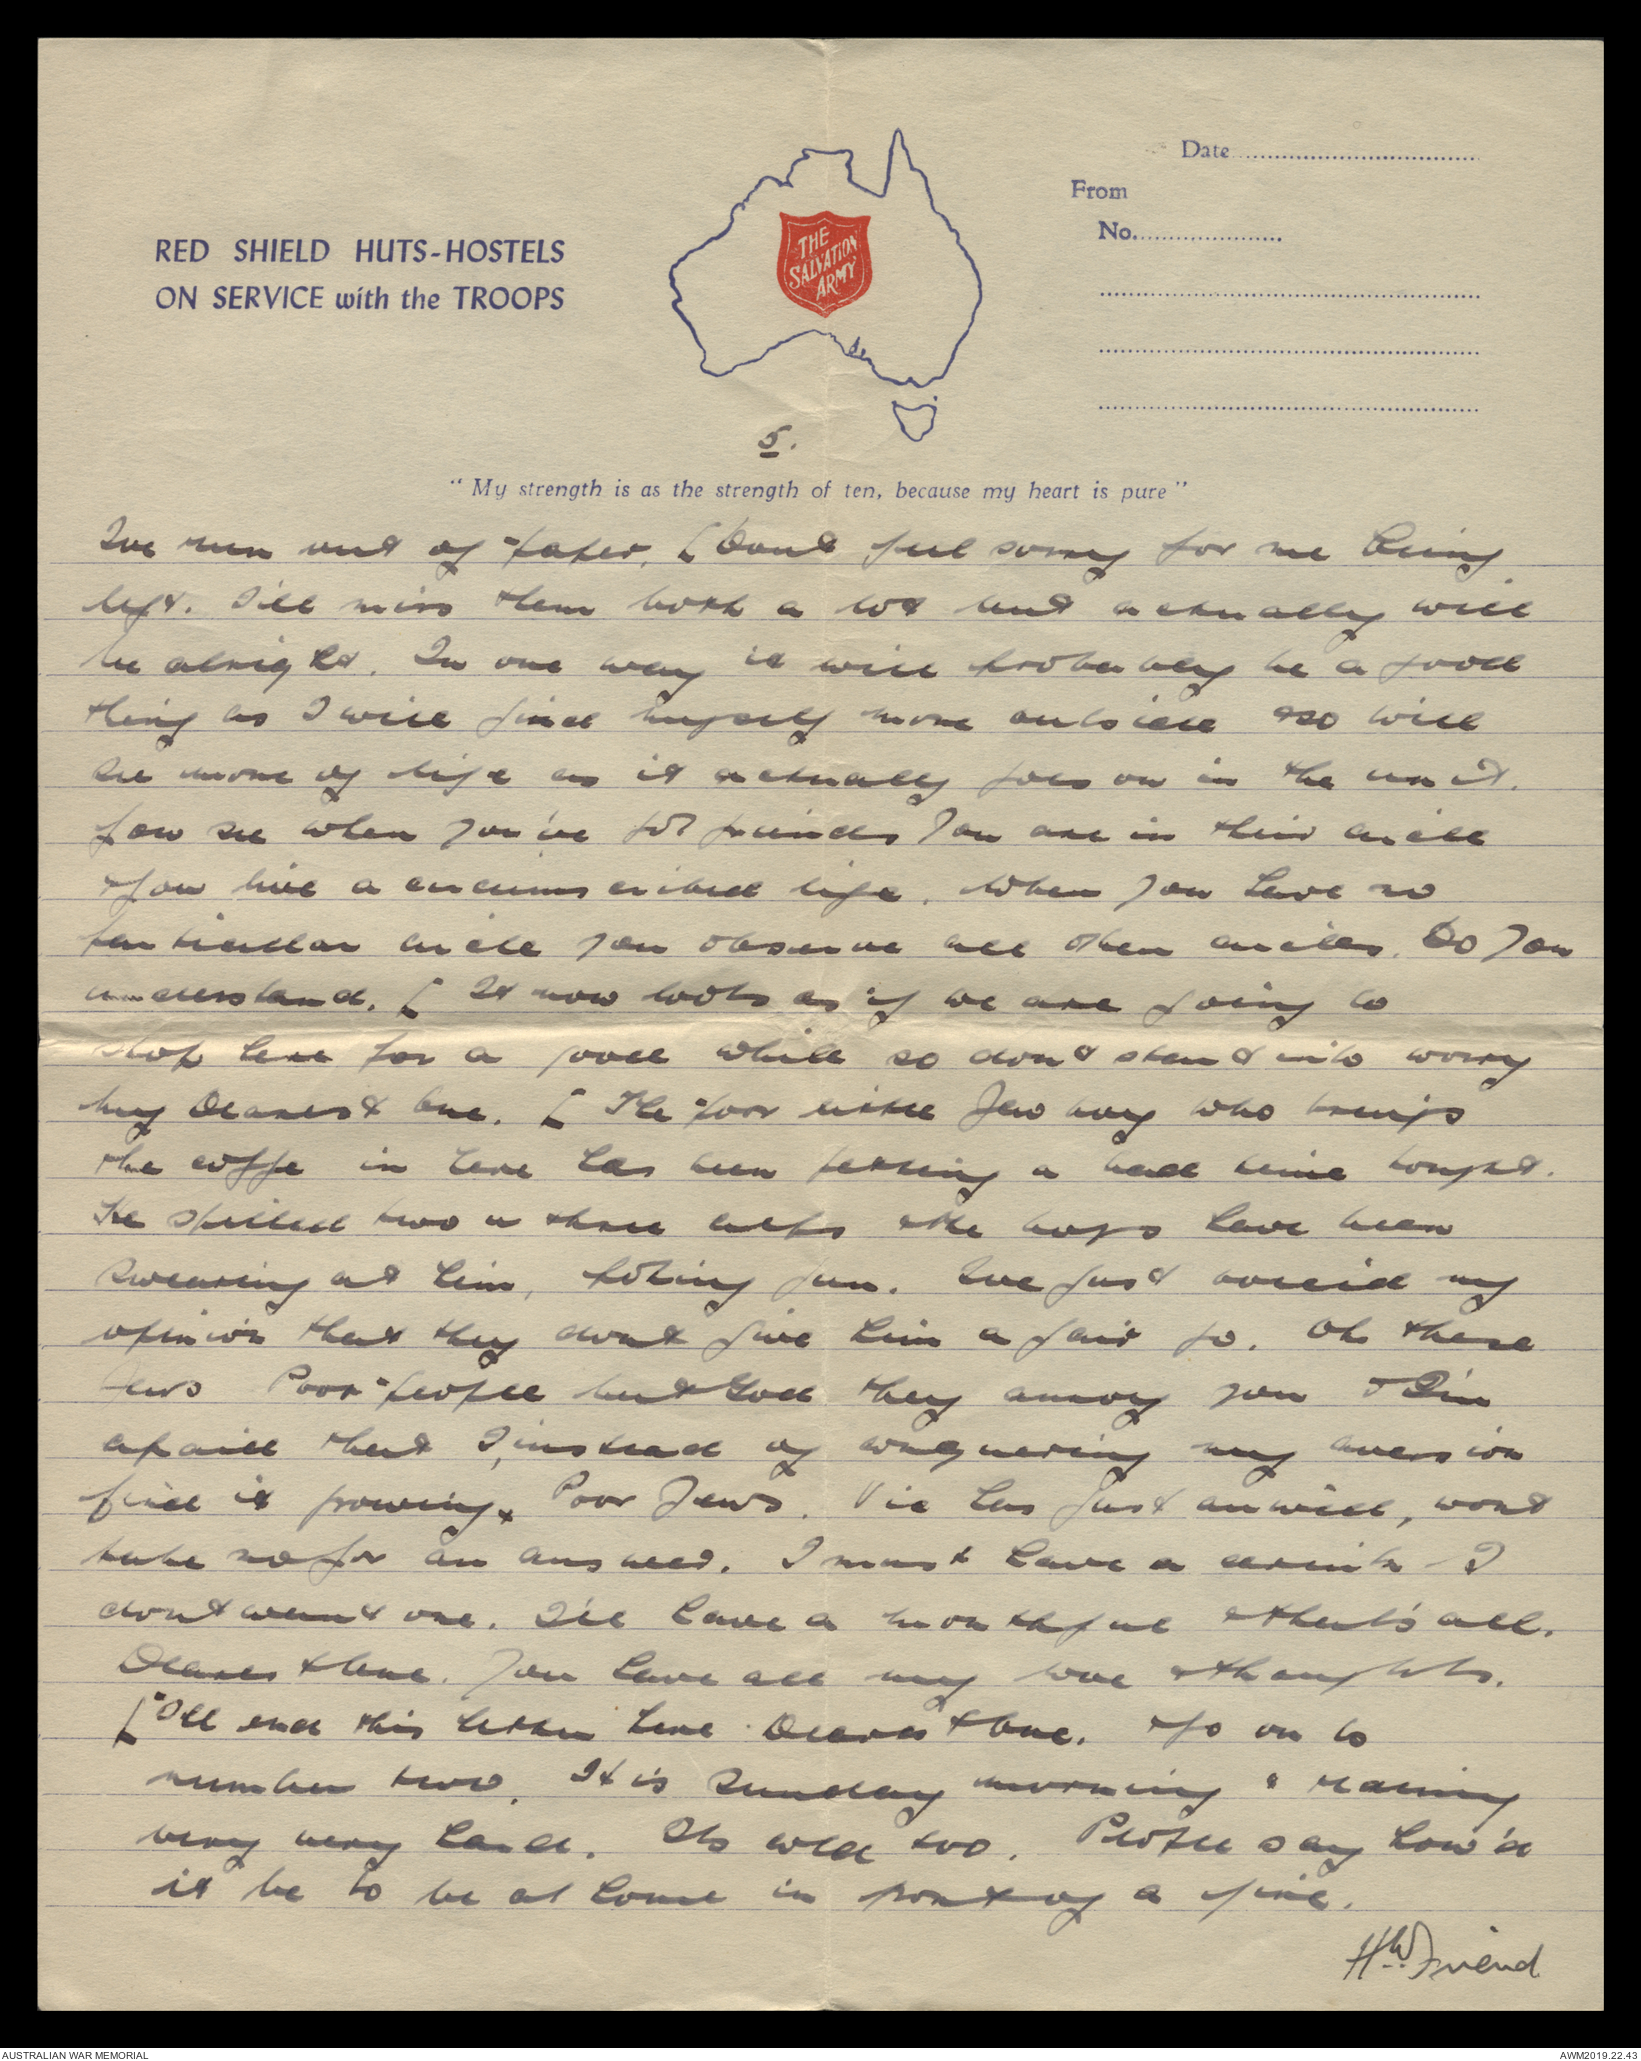 Date
From
No.
RED SHIELD HUTS-HOSTELS
ON SERVICE with the TROOPS
THE
SALVATION
ARMY
5.
"My strength is as the strength of ten, because my heart is pure"
Ive run out of paper. [ Dont feel sorry for me being
left. I'll miss them both a lot but actually will
be alright. In one way it will probably be a good
thing as I will find myself more outside & so will
see more of life as it actually goes on in the unit.
You see when you've got friends you are in their circle
& you live a circumscribed life. When you have no
particular circle you observe all other circles. Do you
understand. [ It now looks as if we are going to
stop here for a good while so don't start into worry
my Dearest One. [ The poor little Jew boy who brings
the coffe in here has been getting a bad time tonight.
He spilled two or three cups & the boys have been
swearing at him, poking fun. Ive just voiced my
opinion that they dont give him a fair go. Oh these
Jews Poor people but God they annoy you & I'm
afraid that I, instead of conquering my aversion
find it growing. Poor Jews. Vic has just arrived, wont
take no for an answer. I must have a drink I
dont want one. I'll have a mouthful & that's all.
Dearest One. You have all my love & thoughts.
[ I'll end this letter here Dearest One. & go on to
number two. It is Sunday morning & raining
very very hard. Its cold too. People say how'd
it be to be at home in front of a fire.
HW Friend
AUSTRALIAN WAR MEMORIAL
AWM2019.22.43